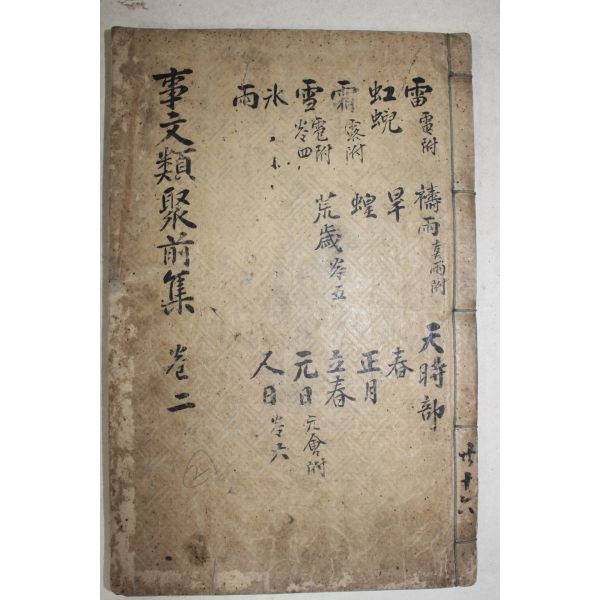 事文類聚前集 卷二
雷 電附 禱雨 喜雨附 天時部
虹蜺 旱 春
霜 露附 蝗 正月
雪 雹附 卷四 荒歲 卷五 立春
氷 元日 元會附
雨 人日 卷六
共十六